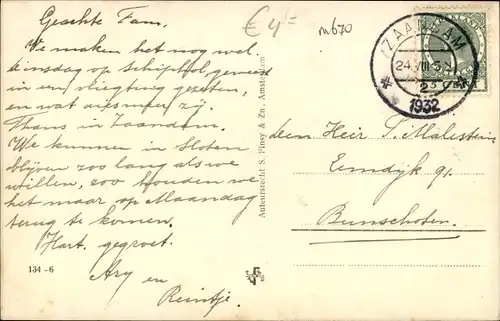 Geachte Fam.
We maken het nog wel.
Dinsdag op Schiphol geweest
in een vliegtuig gezeten,
en wat al meer zij.
Thans in Zaandam.
We kunnen in Sloten
blijven zoo lang als we
willen, zoo houden we
het maar op Maandag
terug te komen.
Hart. gegroet.
Ary en
Reintje.
134 - 6
Auteursrecht S. Pinsy & Zn., Amsterdam
€ 4,-
m670
ZAANDAM
24.VIII
1932
den Heer S. Malestein
Eemdyk 91.
Bunschoten.